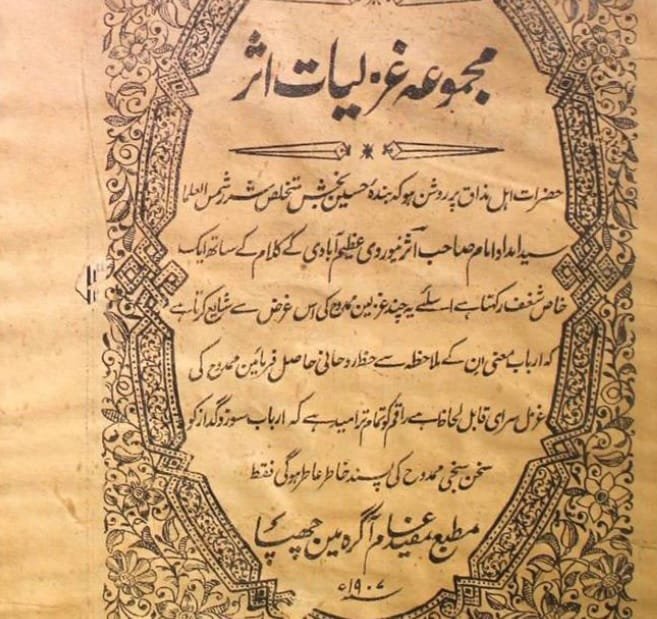 مجموعہ غزلیات اثر
حضرات اہل مذاق پر روشن ہو کہ بندۂ حسین بخش متخلص شرر شمس العلما
سید امداد امام صاحب اثر نیوروی عظیم آبادی کے کلام کے ساتھ ایک
خاص شغف رکہتا ہے اسلئے یہ چند غزلین ممدوح کی اس غرض سے شایع کرتا ہے
کہ ارباب معنی ان کے ملاحظہ سے حظ روحانی حاصل فرمائین ممدوح کی
غزل سرای قابل لحاظ ہے راقم کو تمام تر امید ہے کہ ارباب سوز و گداز کو
سخن سنجی ممدوح کی پسند خاطر عاطر ہوگی فقط
مطبع مفید عام آگرہ مین چھپا
سنہ ۱۹۰۷ء